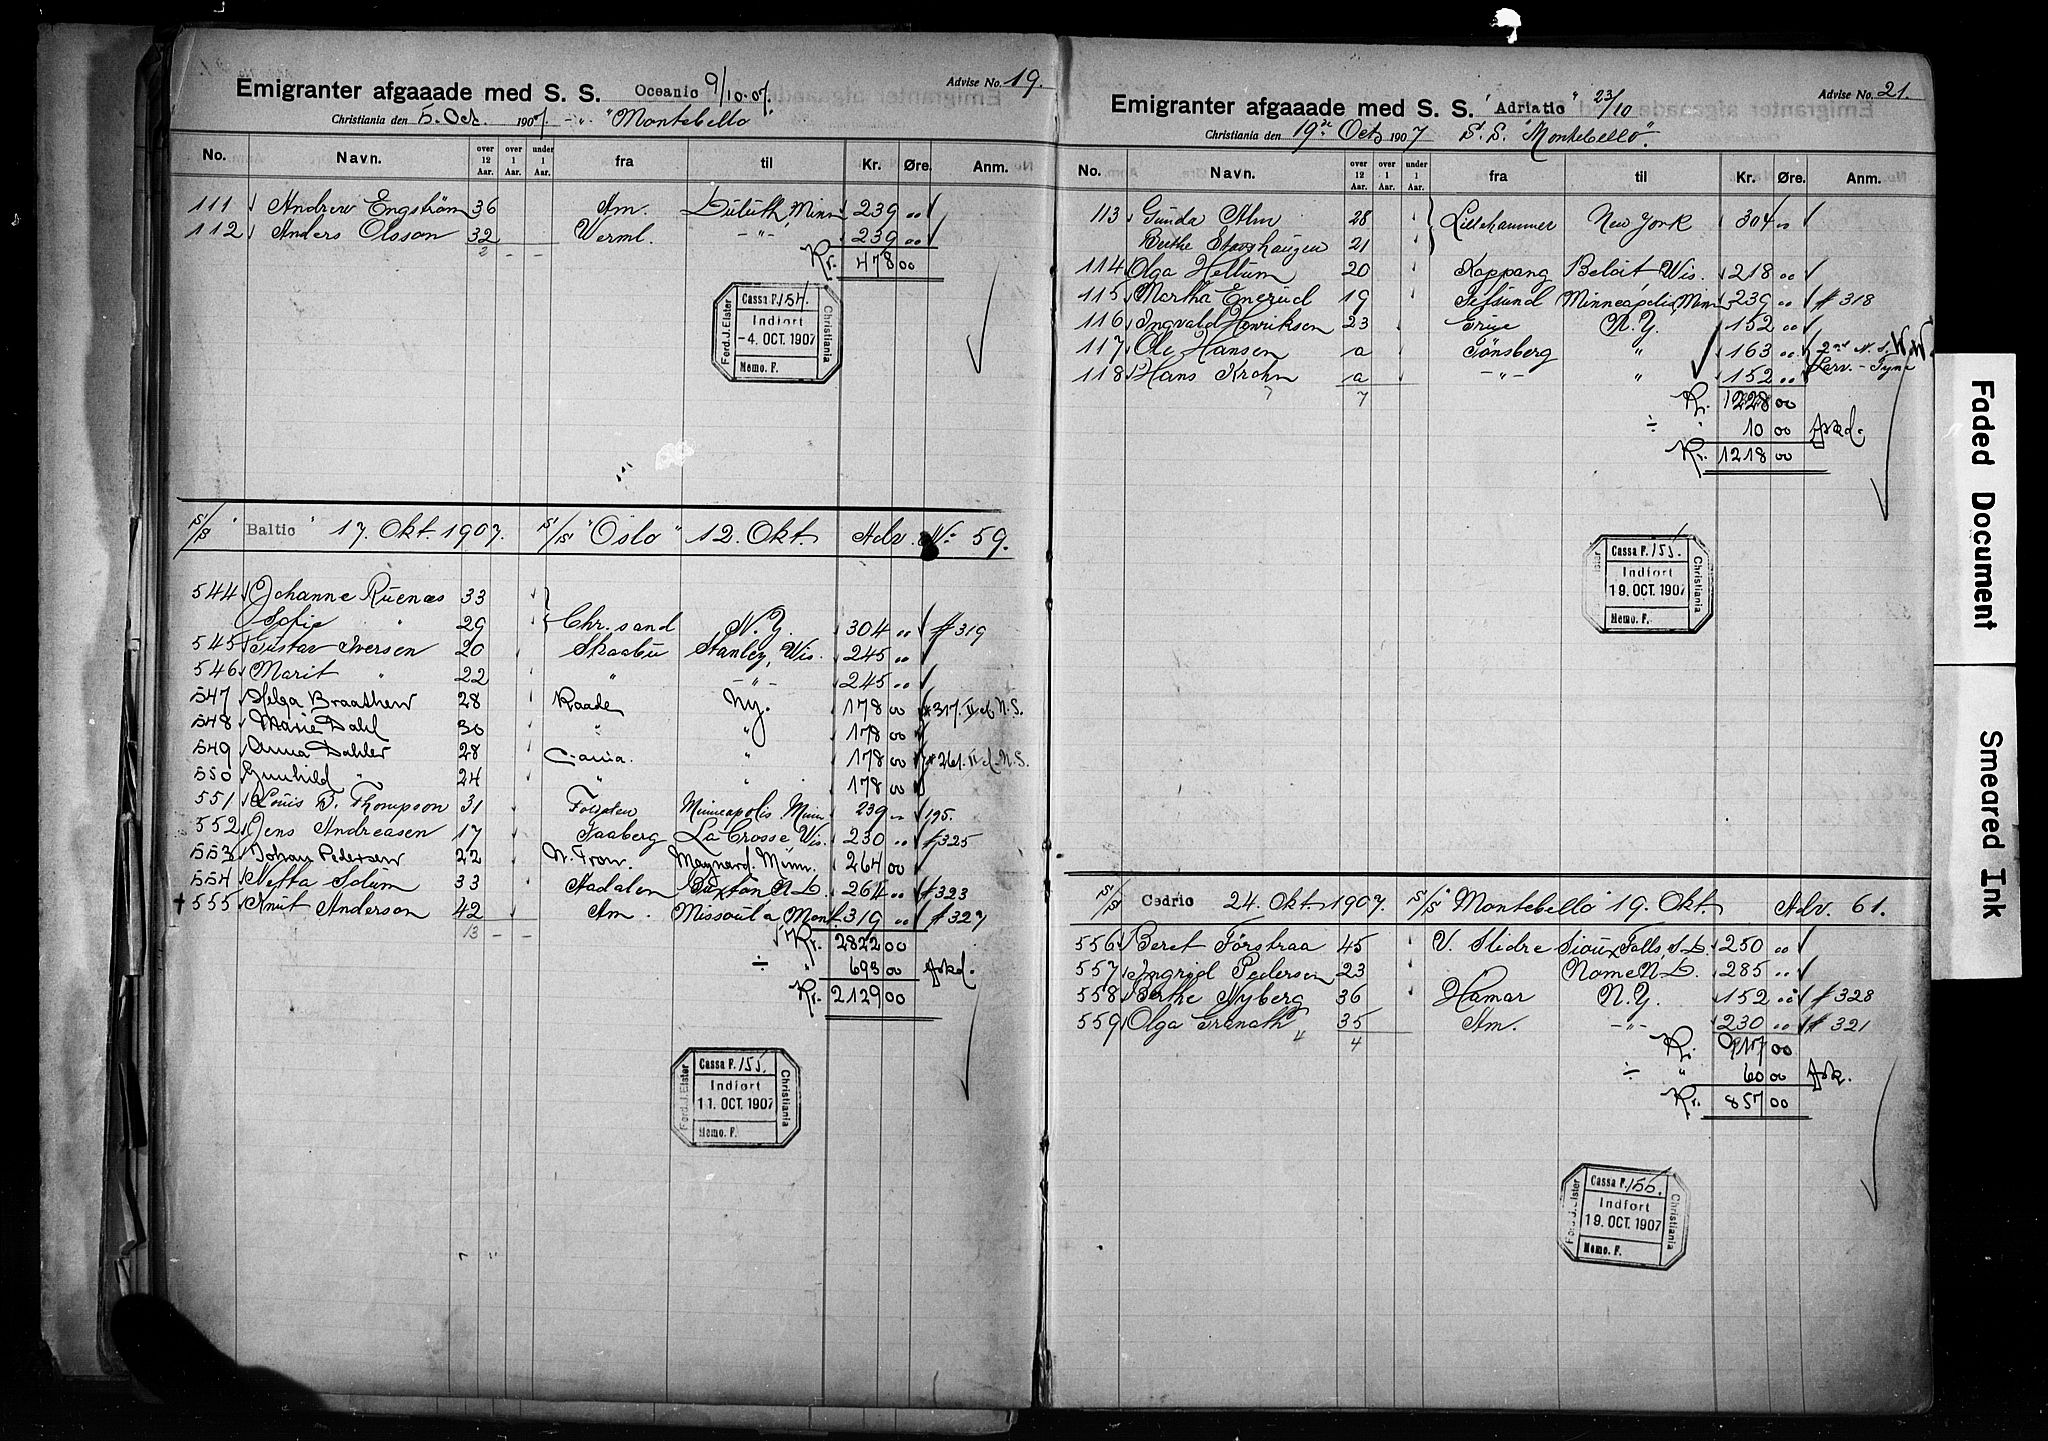 Emigranter afgaaade med S. S. Oceanic 9/10.07. Advise No. 19.
Christiania den 5. Oct. 1907. -„- "Montebello"
No. Navn. over 12 Aar. over 1 Aar. under 1 Aar. fra til Kr. Øre. Anm.
111 Andrew Engström 36 Am. Duluth Minn 239 „
112 Anders Olsson 32 Verml. -„- 239 „
2 - - Kr. 478 00
Ferd. J. Elster Cassa F. 154. Indført -4. OCT. 1907 Memo. F. Christiania
S/S "Baltic" 17. Okt. 1907. S/S "Oslo" 12. Okt. Adv. No 59.
544 Johanne Ruenæs 33
Sofie „ 29 Chr.sand N.Y. 304 „ # 319
545 Gustav Iversen 20 Skaabu Stanley, Wis. 245 „
546 Marit „ 22 „ -„- 245 „
547 Helga Braathen 28 Raade Ny. 178 00 # 317. II cl. N.S.
548 Marie Dahl 30 „ „ 178 00
549 Anna Dahler 28 Cania. „ 178 00 # 261. II cl. N.S.
550 Gunhild „ 24 „ „ 178 00
551 Louis T. Thompson 31 Minneapolis Minn 239 „ 195.
552 Jens Andreasen 17 Faaberg La Crosse, Wis. 230 „ # 325
553 Johan Pedersen 22 N. Tron. Maynard. Minn. 264 00
554 Netta Solum 33 Aadalen Buxton N.D. 264 „ # 323
555 Knut Anderson 42 Am. Missoula Mont. 319 „ # 327
13 - - Kr. 2822 00
÷ „ 693 00 Askd.
Kr. 2129 00
Ferd. J. Elster Cassa F. 155. Indført 11. OCT. 1907 Memo. F. Christiania
Emigranter afgaaade med S. S. "Adriatic" 23/10 Advise No. 21.
Christiania den 19de Oct 1907 S. S. "Montebello".
No. Navn. over 12 Aar. over 1 Aar. under 1 Aar. fra til Kr. Øre. Anm.
113 Gunda Alm 28 Lillehammer New York 304 „
Berthe Stavshaugen 21
114 Olga Hellum 20 Koppang Beloit Wis. 218 „
115 Martha Enerud 19 Jessund Minneapolis, Minn 239 „ # 318
116 Ingvald Henriksen 23 Erige N.Y. 152 „
117 Ole Hansen a Tönsberg „ 163 „ 2nd N.S. W.W.
118 Hans Krohn a -„- „ 152 „ Larv. - Tyne
7 Kr. 1228 00
÷ „ 10 00 Askd.
Kr. 1218 00
Cassa F. 155. Indført 19. OCT. 1907 Memo. F. Christiania
S/S Cedric 24. Okt. 1907. S/S "Montebello" 19. Okt. Adv. 61.
556 Beret Förstraa 45 V. Slidre Sioux Falls, S.D. 250 „
557 Ingrid Pedersen 23 Nome N.D. 285 „
558 Berthe Nyberg 36 Hamar N.Y. 152 „ # 328
559 Olga Granath 35 Am. -„- 230 „ # 321
4 Kr. 917 00
÷ „ 60 00 Ask.
Kr. 857 00
Ferd. J. Elster Cassa F. 155. Indført 19. OCT. 1907 Memo. F. Christiania
Faded Document
Smeared Ink